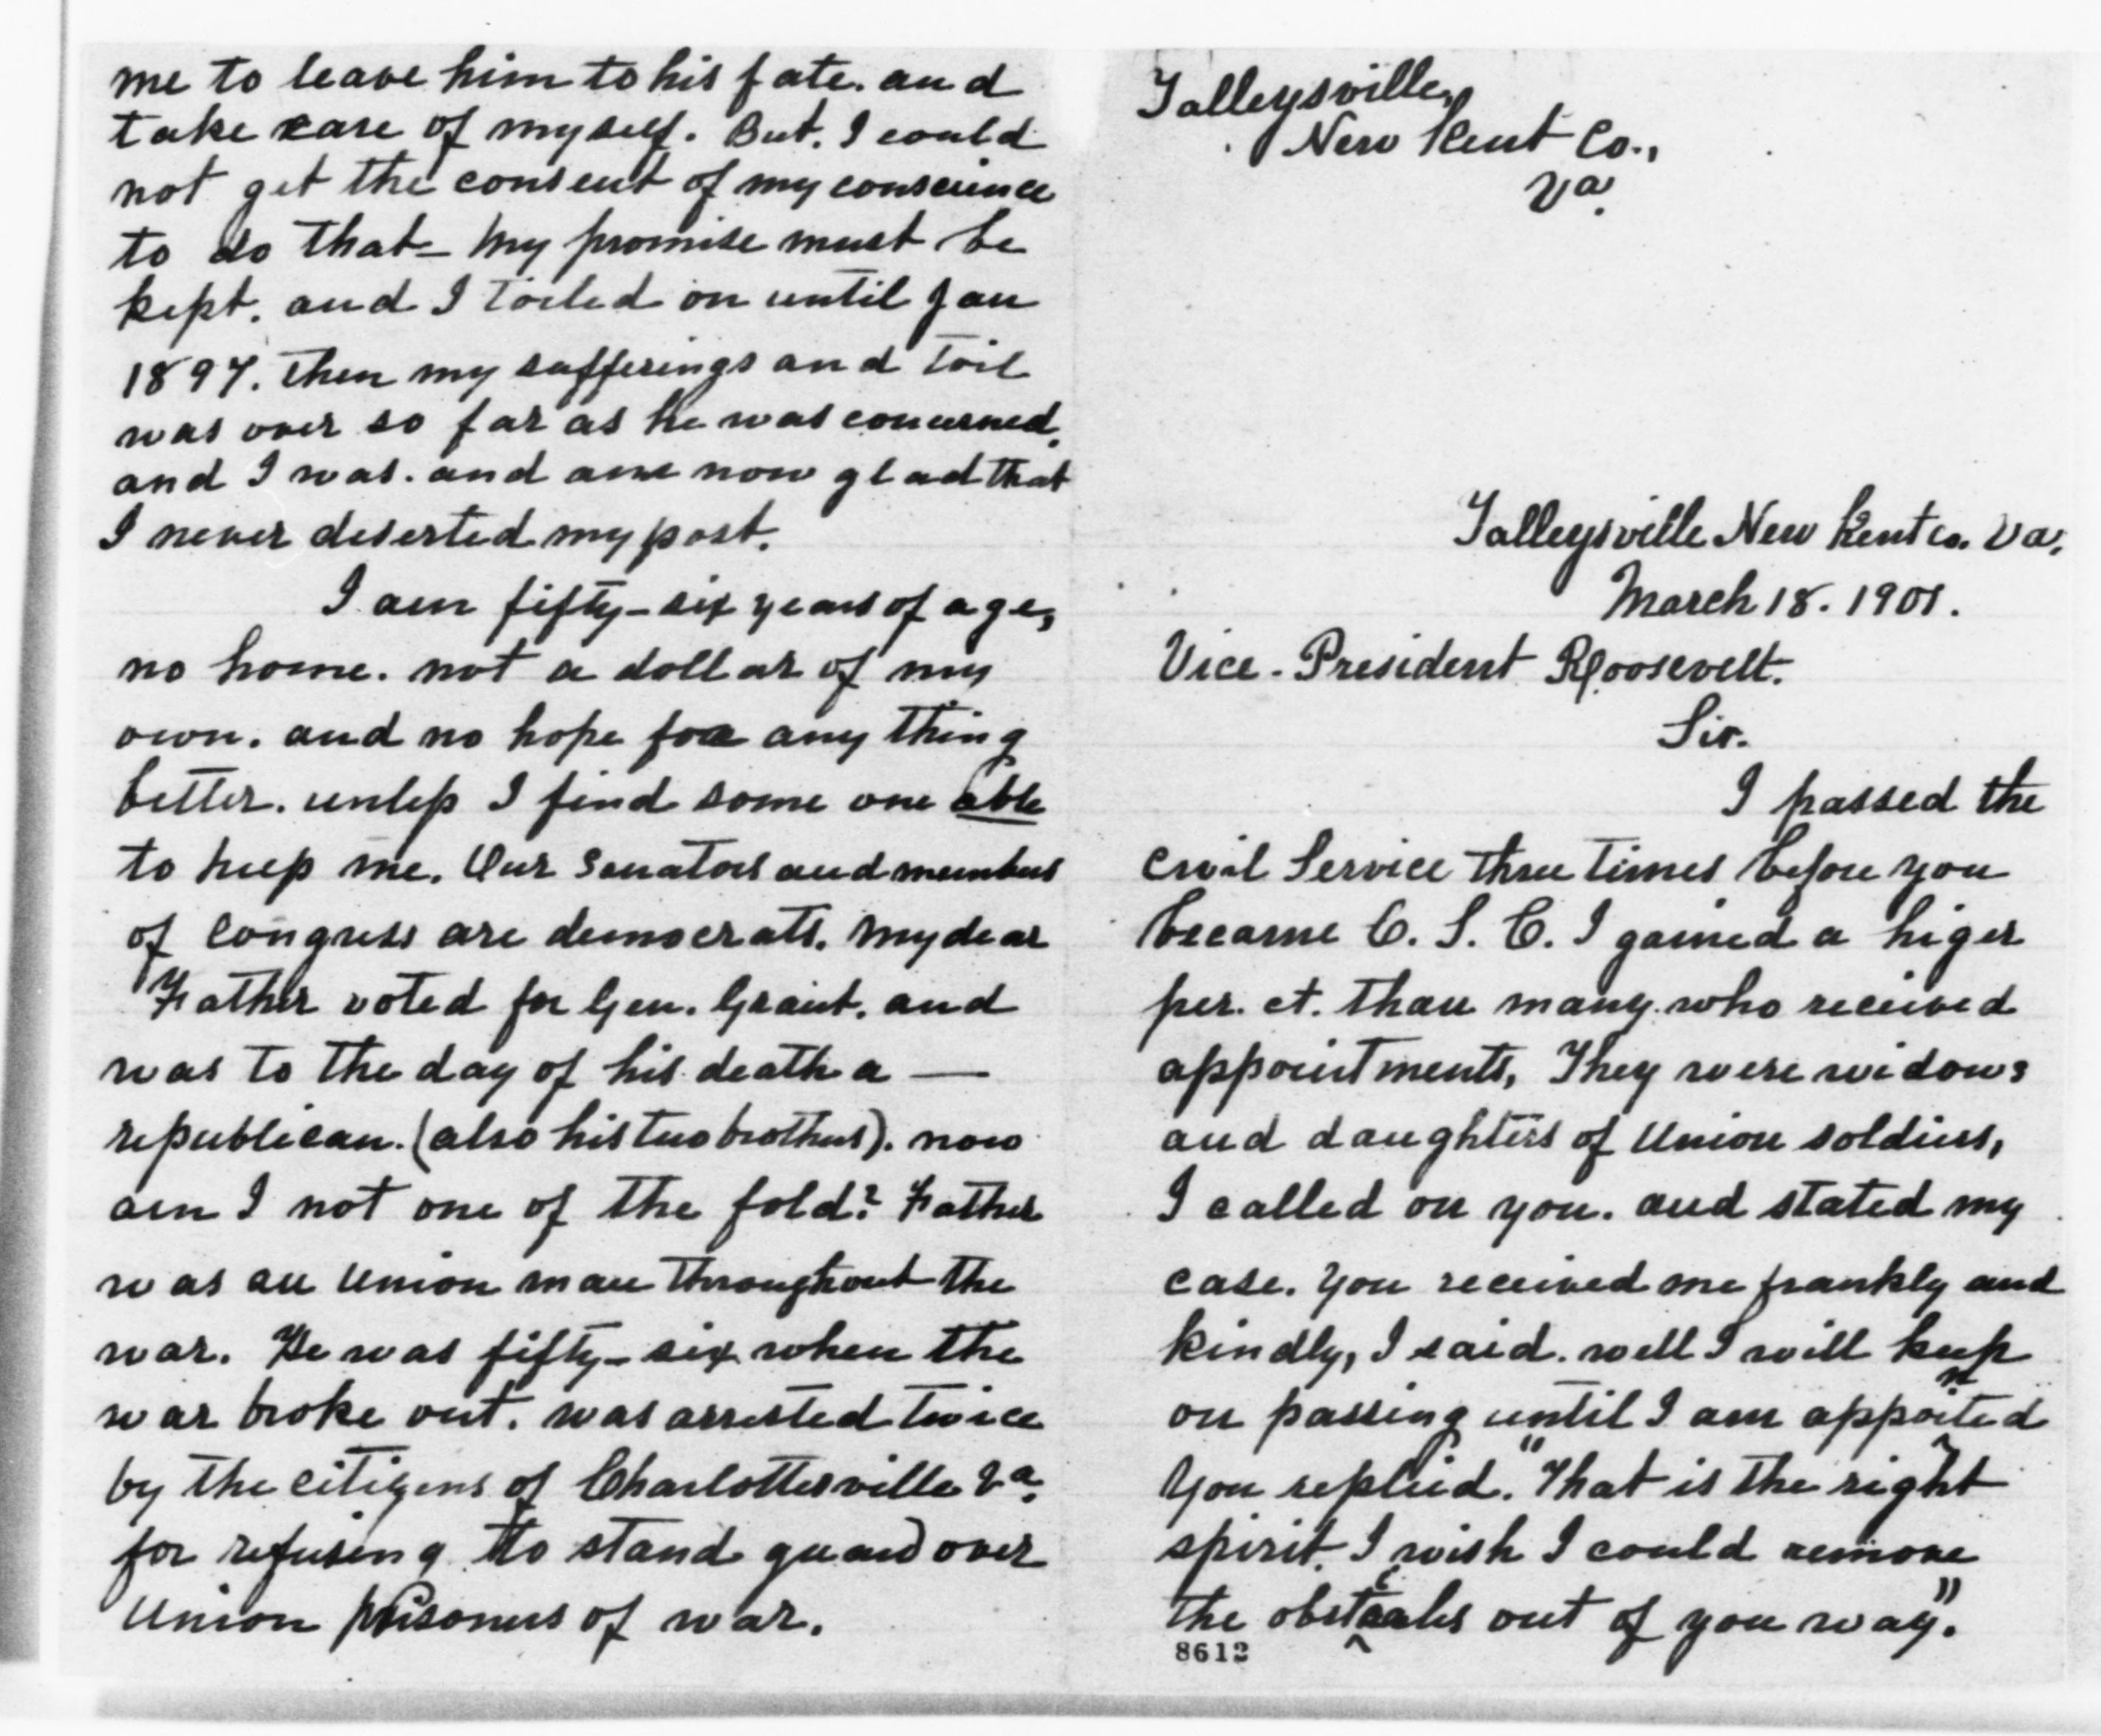 me to leave him to his fate. and
take care of myself. But. I could
not get the consent of my conscience
to do that - My promise must be
kept. and I toiled on until Jan
1897. then my sufferings and toil
was over so far as he was concerned,
and I was. and am now glad that
I never deserted my post.
I am fifty-six years of age,
no home. not a dollar of my
own. and no hope for any thing
better. unless I find some one able
to help me. Our Senators and members
of Congress are democrats. My dear
Father voted for Gen. Grant. and
was to the day of his death a —
republican. (also his two brothers). now
am I not one of the fold? Father
was an Union man throughout the
war. He was fifty-six when the
war broke out. was arrested twice
by the citizens of Charlottesville Va.
for refusing to stand guard over
Union prisoners of war.
Talleysville,
New Kent Co.,
Va.
Talleysville New Kent co. Va.
March 18. 1901.
Vice-President Roosevelt.
Sir.
I passed the
Civil Service three times before you
became C. S. C. I gained a higer
per. ct. than many who received
appointments, They were widows
and daughters of Union soldiers,
I called on you. and stated my
case. You received me frankly and
kindly, I said. well I will keep
on passing until I am appointed
You replied. "That is the right
spirit. I wish I could remove
the obstacles out of you way".
8612